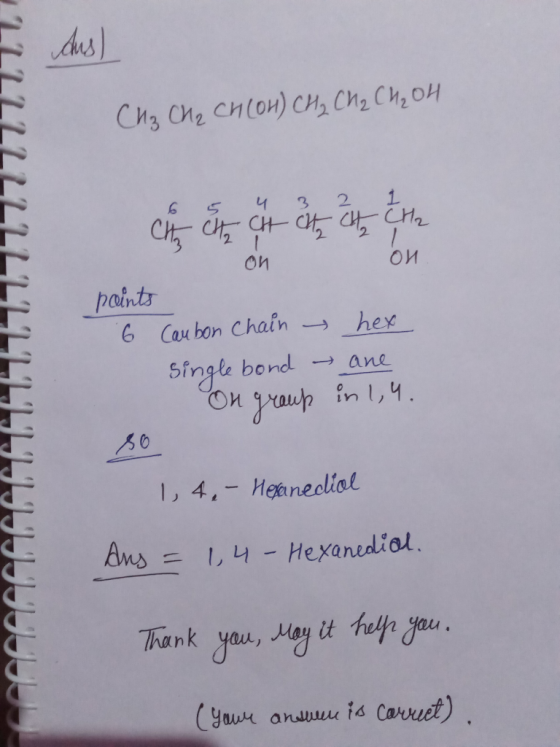 Ans)
CH3 CH2 CH(OH) CH2 CH2 CH2 OH
6 5 4 3 2 1
CH3 - CH2 - CH - CH2 - CH2 - CH2
OH OH
points
6 Carbon chain → hex
Single bond → ane
OH group in 1,4.
so
1, 4. - Hexanediol
Ans = 1,4 - Hexanediol.
Thank you, May it help you.
(your answer is correct).